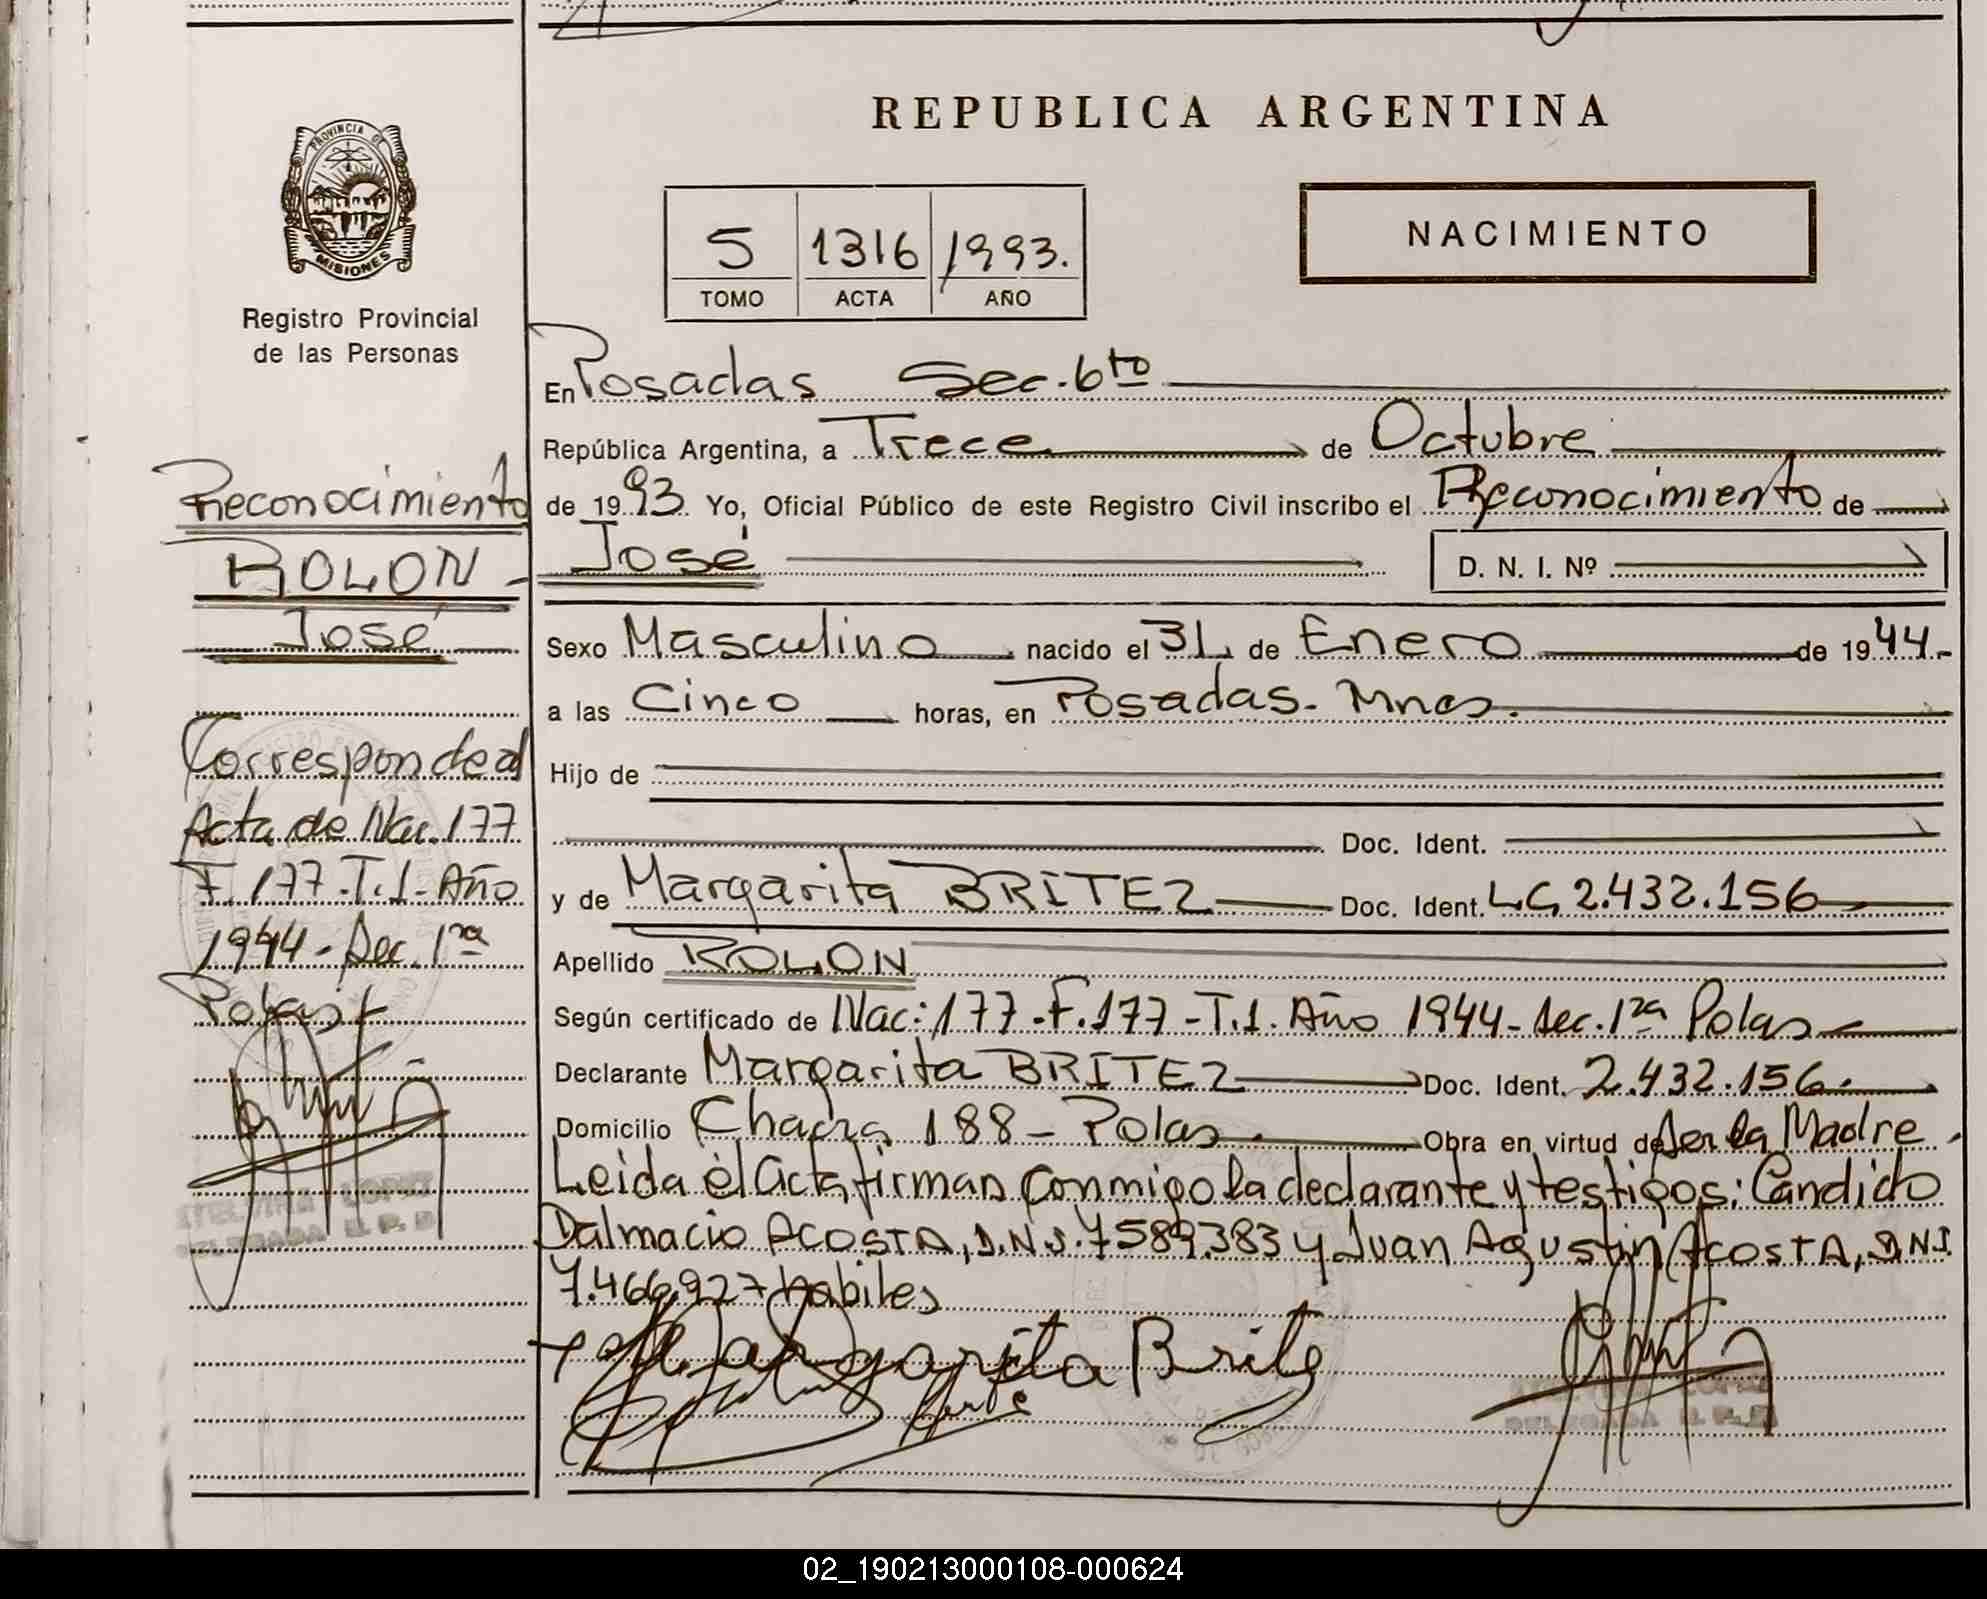 REPUBLICA ARGENTINA
PROVINCIA DE
MISIONES
Registro Provincial
de las Personas
NACIMIENTO
5 1316 1993.
TOMO ACTA AÑO
En Posadas Sec. 6to
República Argentina, a Trece de Octubre
de 1993. Yo, Oficial Público de este Registro Civil inscribo el Reconocimiento de
José D. N. I. Nº
Sexo Masculino nacido el 31 de Enero de 1944.-
a las Cinco horas, en Posadas. Mnes.
Hijo de
Doc. Ident.
y de Margarita BRITEZ Doc. Ident. LC 2.432.156
Apellido ROLON
Según certificado de Nac: 177-F.177-T.1. Año 1944-Sec.1ra Pdas
Declarante Margarita BRITEZ Doc. Ident. 2.432.156.
Domicilio Chacra 188 - Pdas. Obra en virtud de Ser la Madre.
Leida el acta firman conmigo la declarante y testigos: Candido
Dalmacio ACOSTA, D.N.I. 7589.383 y Juan Agustin ACOSTA, D.N.I.
7.466.927 habiles
Margarita Brite
Reconocimiento
ROLON -
José
Corresponde al
Acta de Nac. 177
F. 177-T.1-Año
1944-Sec. 1ra
Pdas
02_190213000108-000624